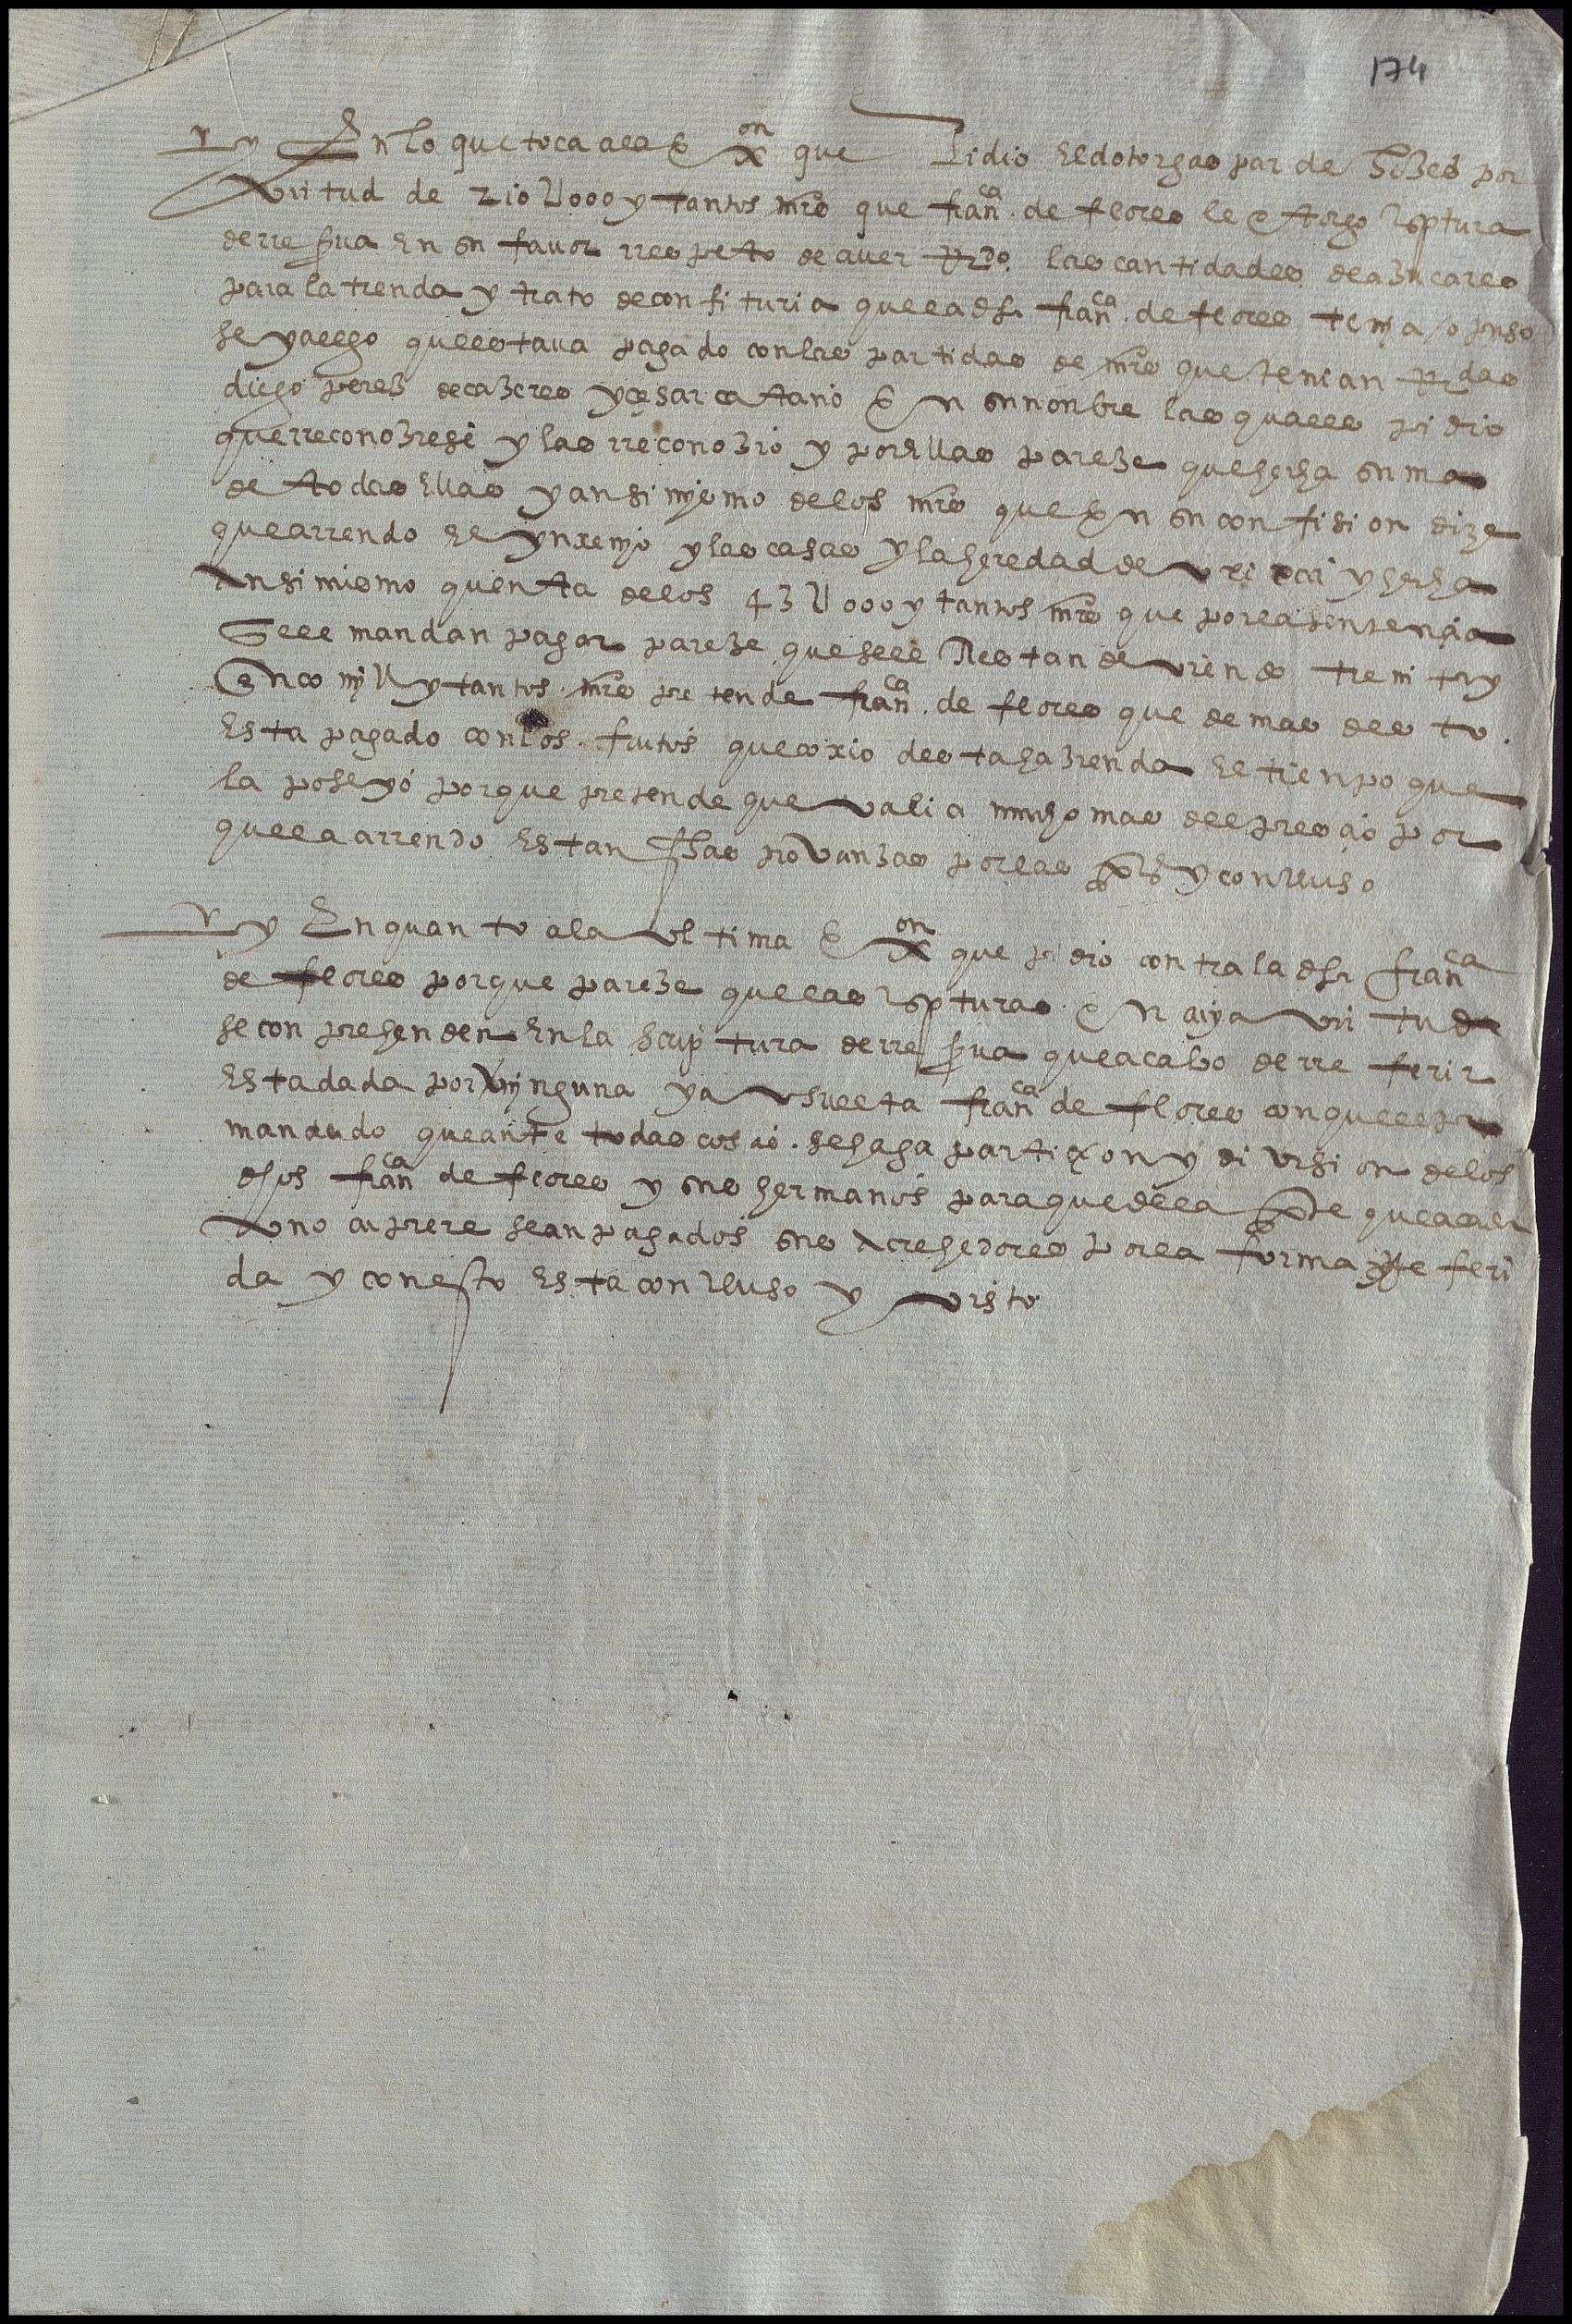 174
y En lo que toca al exon que pidio el dotor gaspar de por
virtud de 210 U 000 y tantos mrs que franca de flores le otorgo scriptura
de rreserva en su favor rrespeto de aver las cantidades de azucares
para la tienda y trato de confituria que la dha franca de flores tenia
se y alego que estava pagado con las partidas de mrs que tenian
diego perez de cazeres y cesar catano en su nonbre las quales pidio
que rreconoziese y las rreconozio y por ellas pareze que hecha suma
de todas ellas y ansi mysmo de los mrs que en su confision dize
que arrendo el ynxenyo y las casas y la heredad de y hecha
ansimismo quenta de los 43 U 000 y tantos mrs que por la sentencia
se le mandan pagar pareze que se le rrestan deviendo treinta y
cinco myll y tantos mrs pretende franca de flores que demas desto
esta pagado con los frutos que coxio desta hazienda el tienpo que
la poseyo porque pretende que valia mucho mas del prescio por
que la arrendo estan fhas provanzas por las ptes y concluso
y En quanto a la ultima exon que pidio contra la dha franca
de flores porque pareze que las scripturas en cuya virtud
se conprehenden en la scriptura de rreserva que acabo de rreferir
esta dada por nynguna y asuelta franca de flores con que esta
mandado que ante todas cosas se haga particion y division de los
dhos franca de flores y sus hermanos para que de la pte que a cada
uno cupiere sean pagados sus acrehedores por la forma rreferi
da y con esto esta concluso y visto